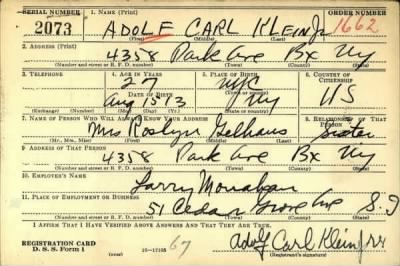 SERIAL NUMBER 1. NAME (Print) ORDER NUMBER
2073 ADOLF CARL KLEIN Jr 1662
(First) (Middle) (Last)
2. ADDRESS (Print)
4358 Park Ave Bx Ny
(Number and street or R. F. D. number) (Town) (County) (State)
3. TELEPHONE 4. AGE IN YEARS 5. PLACE OF BIRTH 6. COUNTRY OF CITIZENSHIP
27 NYC
DATE OF BIRTH
Aug 15 13 Ny US
(Exchange) (Number) (Mo.) (Day) (Yr.) (State or country)
7. NAME OF PERSON WHO WILL ALWAYS KNOW YOUR ADDRESS 8. RELATIONSHIP OF THAT PERSON
Mrs Roslyn Gelhaus Sister
(Mr., Mrs., Miss) (First) (Middle) (Last)
9. ADDRESS OF THAT PERSON
4358 Park Ave Bx Ny
(Number and street or R. F. D. number) (Town) (County) (State)
10. EMPLOYER'S NAME
Larry Monahan
11. PLACE OF EMPLOYMENT OR BUSINESS
51 Cedar Grove Ave S. I
(Number and street or R. F. D. number) (Town) (County) (State)
I AFFIRM THAT I HAVE VERIFIED ABOVE ANSWERS AND THAT THEY ARE TRUE.
REGISTRATION CARD
D. S. S. Form 1 16—17105 67 Adolf Carl Klein Jr
(Registrant's signature)